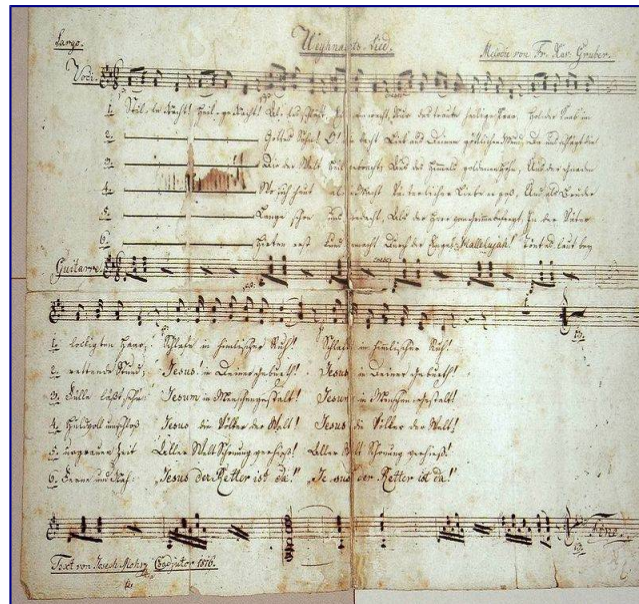 Largo.
Weyhnachts-Lied.
Melodie von Fr. Xav. Gruber.
Voci.
1. Stille Nacht! Heilige Nacht! Alles schläft; Einsam wacht Nur das traute heilige Paar. Holder Knab im
2. Gottes Sohn! O! lacht Lieb aus Deinem göttlichen Mund, Da uns schlägt die
3. Die der Welt Heil gebracht, Aus des Himmels goldenen Höhn, Aus der Gnaden
4. Wo sich heut alle Macht Väterlicher Liebe ergoß, Und als Bruder
5. Lange schon uns bedacht, Als der Herr vom Grimme befreyt In der Väter
6. Hirten erst kund gemacht Durch der Engel Hallelujah! Tönt es laut bey
Guitarre.
1. lockigten Haar, Schlafe in himmlischer Ruh! Schlafe in himmlischer Ruh!
2. rettende Stund; Jesus in Deiner Geburth! Jesus in Deiner Geburth!
3. Fülle läßt sehn Jesum in Menschengestalt! Jesum in Menschengestalt!
4. huldvoll umschloß Jesus die Völker der Welt! Jesus die Völker der Welt!
5. urgrauen Zeit Aller Welt Schonung verhieß! Aller Welt Schonung verhieß!
6. Ferne und Nah: "Jesus der Retter ist da!" "Jesus der Retter ist da!"
Fine
Text von Joseph Mohr Coadjutor 1816.